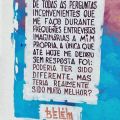 DE TODAS AS PERGUNTAS
INCONVENIENTES QUE ME
FAÇO DURANTE
FREQUENTES ENTREVISTAS
IMAGINÁRIAS A MIM
PRÓPRIA, A ÚNICA QUE
ATÉ HOJE ME DEIXOU
SEM RESPOSTA FOI:
PODERIA TER SIDO
DIFERENTE, MAS
TERIA REALMENTE
SIDO MUITO MELHOR?
BELÉM